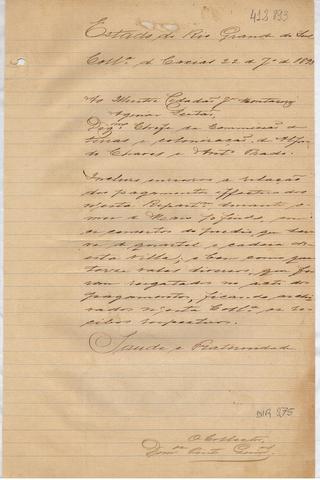 412 893
Estado do Rio Grande do Sul
Coll.ª de Caxias 22 de J.º de 189
Ao Illustre Cidadão J.m Montaury
Aguiar Leitão,
Dig.mo Chefe da Commissão de
terras e colonização, de Alfre-
do Chaves e Ant.º Prado.
Incluso envio a relação
dos pagamentos effectua-
dos n'esta Repart.m durante o
mez de Maio p. findo, em
concertos do predio que ser-
ve de quartel e cadeia
esta Villa; e bem como que
torze vales diversos, que fo-
ram resgatados no acto do
pagamento, ficando archi-
vados n'esta Coll.ª os re-
cibos respectivos.
Saude e Fraternidade
DIR 275
O Collector,
Dom.os